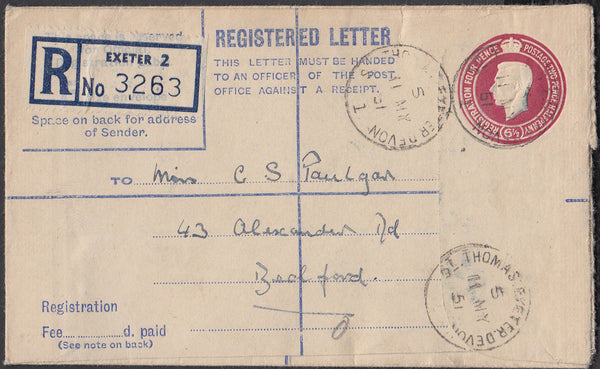 REGISTERED LETTER
THIS LETTER MUST BE HANDED
TO AN OFFICER OF THE POST
OFFICE AGAINST A RECEIPT.
R
EXETER 2
No 3263
Space on back for address
of Sender.
REGISTRATION FOUR PENCE
POSTAGE TWO PENCE HALFPENNY
6½
ST. THOMAS, EXETER, DEVON
5
11 MY
51
1
TO Miss C S
43 Alexander Rd
Bedford.
0
ST. THOMAS, EXETER, DEVON
5
11 MY
51
Registration
Fee d. paid
(See note on back)